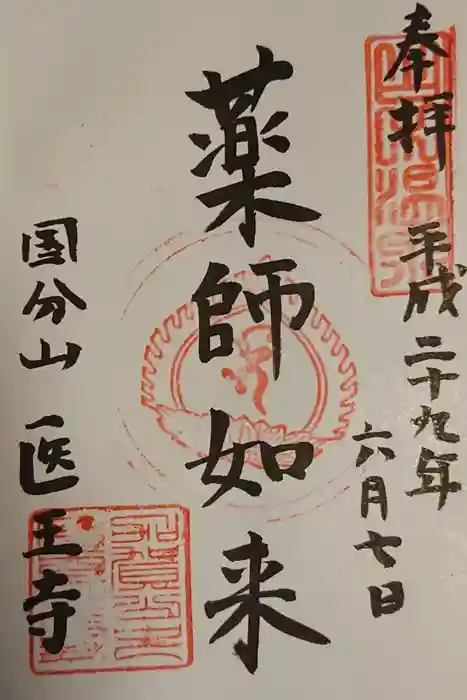 奉拝
平成二十九年
六月七日
薬師如来
国分山 医王寺